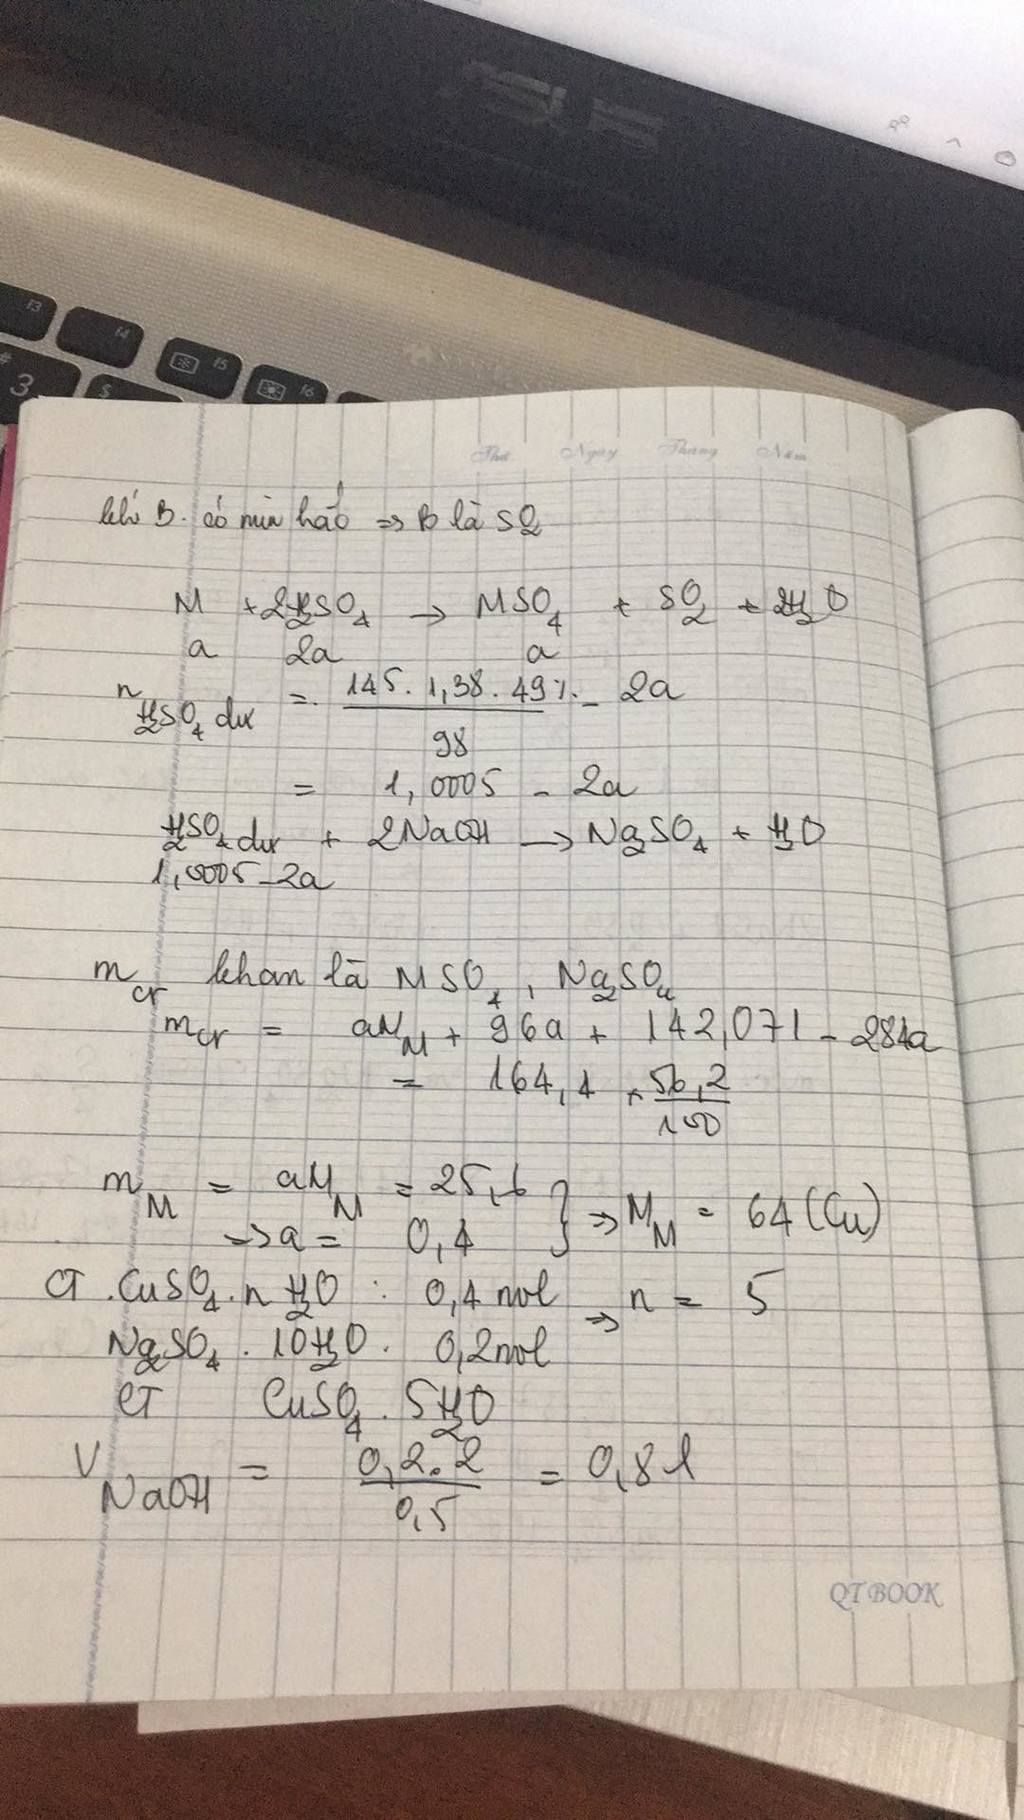 ASUS
F3
F4
F5
F6
#
3
$
Thứ Ngày Tháng Năm
khí B. có mùi hắc => B là SO2
M + 2H2SO4 -> MSO4 + SO2 + 2H2O
a 2a a
n H2SO4 dư = 145. 1,38. 49% - 2a
98
= 1,0005 - 2a
H2SO4 dư + 2NaOH -> Na2SO4 + H2O
1,0005-2a
m cr khan là MSO4, Na2SO4
m cr = aM M + 96a + 142,071 - 284a
= 164,4 × 56,2
100
m M = aM M = 25,6 } => M M = 64 (Cu)
-> a = 0,4
CT .CuSO4.nH2O : 0,4 mol => n = 5
Na2SO4. 10H2O. 0,2mol
CT CuSO4. 5H2O
V NaOH = 0,2.2 = 0,8 l
0,5
QTBOOK